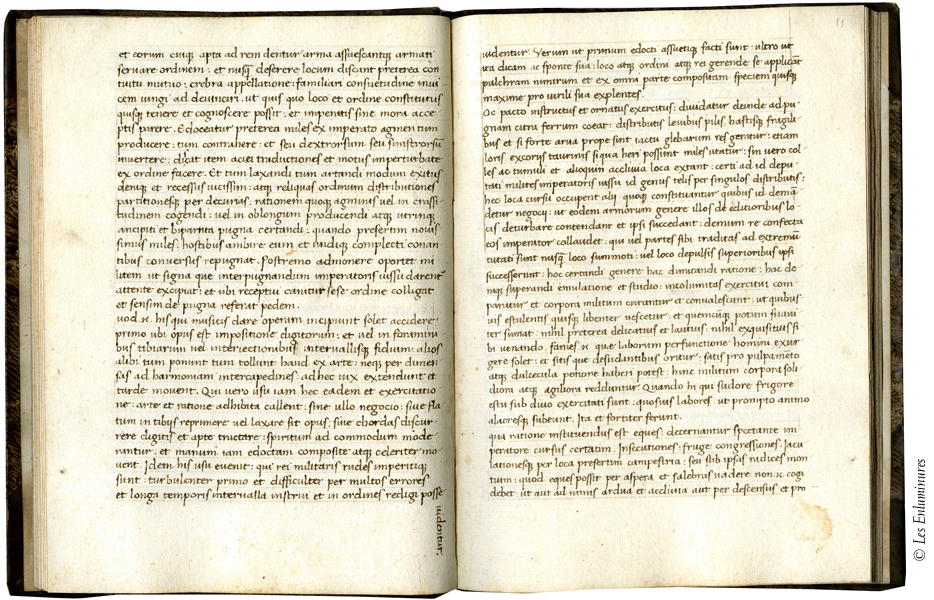 et eorum cuiq; apta ad rem dentur arma assuescantq; armati
servare ordinem: et nusq̃ deserere locum discant preterea con
tuitu mutuo: crebra appellatione: familiari consuetudine invi
cem iungi: ad deuinciri: ut quis quo loco et ordine constitutus
quisq; tenere et cognoscere possit: et impenitis sine mora acce
ptis parere. Edoceatur preterea miles ex imperato agmen tum
producere: tum contrahere: et seu dextrorsum seu sinistrorsũ
invertere: discat item aciei traductiones et motus imperturbate
ex ordine facere. Et tum laxandi tum artandi modum exitus
denique et recessus vicissim: atq; reliquas ordinum distributiones
partitionesq; per decurias. rationem quoq; agminis vel in crassi
tudinem cogendi: vel in oblongum producendi atq; utrinq;
ancipiti et bipartita pugna certandi: quando presertim novis
simus miles: hostibus ambire eum et undiq; complecti conan
tibus conversus repugnat. Postremo admonere oportet mi
litem ut signa que inter pugnandum imperatoris iussu darent
attente excipiat: et ubi receptui canitur sese ordine colligat
et sensim de pugna referat pedem.
uod. n. his qui musicis dare operam incipiunt solet accidere:
primo ubi opus est impositione digitorum: et vel in foramini
bus tibiarum vel interiectionibus intervallisq; fidium: alios
alibi tum ponunt tum tollunt haud ex arte: neq; per dimen
sas ad harmoniam intercapedines: ad hec vix extendunt et
tarde movent. Qui vero usu iam hec eadem et exercitatio
ne: arte et ratione adhibita callent: sine ullo negocio: sive fla
tum in tibus reprimere vel laxare sit opus: sive chordas discur
rere digitis et apte tractare: spiritum ad commodum mode
rantur: et manum tam edoctam composite atq; celeriter mo
vent. Idem his usu evenit: qui rei militaris rudes imperitiq;
sunt: turbulenter primo et difficulter per multos errores
et longa temporis intervalla instrui et in ordines redigi posse
videntur.
11
videntur. Verum ut primum edocti assuetiq; facti sunt: ultro ut
ita dicam ac sponte sua: loco atq; ordini atq; rei gerende se applicãt
pulchram nimirum et ex omni parte compositam speciem quisq;
maxime pro virili sua explentes.
oc pacto instructus et ornatus exercitus: dividatur deinde ad pu-
gnam citra ferrum coeat: distributis levibus pilis. hastisq; fragili-
bus et si forte arva prope sint iactu glebarum res genitur: etiam
loris ex coriis taurinis siqua heri possunt miles utatur: sin vero col
les ac tumuli et alioquin acclivia loca extant: certi ad id depu-
tati milites imperatoris iussu id genus telis per singulos distributis:
hec loca cursu occupent alii quoq; constituantur quibus id demã-
detur negocii: ut eodem armorum genere illos de editioribus lo-
cis deturbare contendant et ipsi succedant: demum re confecta
eos imperator collaudet: qui vel partes sibi traditas ad extremũ
tutati sunt nusq̃ loco summoti: vel loco depulsis superioribus ipsi
successerunt: hoc certandi genere hac dimicandi ratione: hac de-
niq; superandi emulatione et studio: incolumitas exercitui com
paratur et corpora militum curantur et convalescunt: ut quibus
vis esculentis quisq; libenter vescatur: et quemcũq; potum suavi
ter sumat: nihil preterea delicatius et lautius: nihil exquisitius si
bi verando. fames. n. que laborum perfunctione homini exur
gere solet: et sitis que desudantibus oritur: satis pro pulpameto
atq; dulcecula potione haberi potest: hinc militum corpora soli-
diora atq; agiliora redduntur Quando hi qui sudore frigore
estu sub divo exercitati sunt: quosvis labores. ut prompto animo
alacresq; subeunt. Ita et fortiter ferunt.
qua ratione instituendus est eques: decernantur spectante im
peratore cursus certatim. Insecutiones: fuge: congressiones. Iacu
lationesq; per loca presertim campestria: seu sub ipsas radices mon
tium: quod eques possit per aspera et salebras vadere non. n. cogi
debet: ut aut ad nimis ardua et acclivia aut per descensus et pro
© Les Enluminures